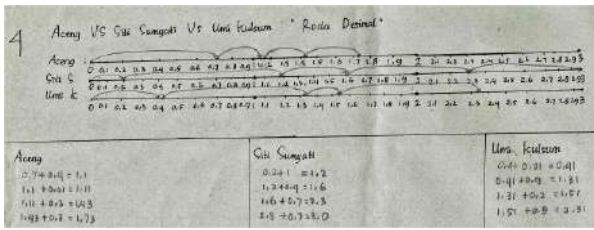 4
Aceng VS Siti Sumyati Vs Umi kulsum "Roda Desimal"
Aceng
0 0.1 0.2 0.3 0.4 0.5 0.6 0.7 0.8 0.9 1 1.2 1.3 1.4 1.5 1.6 1.7 1.8 1.9 2 2.1 2.2 2.3 2.4 2.5 2.6 2.7 2.8 2.9 3
Siti S
0 0.1 0.2 0.3 0.4 0.5 0.6 0.7 0.8 0.9 1 1.1 1.2 1.3 1.4 1.5 1.6 1.7 1.8 1.9 2 2.1 2.2 2.3 2.4 2.5 2.6 2.7 2.8 2.9 3
Umi k
0 0.1 0.2 0.3 0.4 0.5 0.6 0.7 0.8 0.9 1 1.1 1.2 1.3 1.4 1.5 1.6 1.7 1.8 1.9 2 2.1 2.2 2.3 2.4 2.5 2.6 2.7 2.8 2.9 3
Aceng
0.7 + 0.4 = 1.1
1.1 + 0.01 = 1.11
= 1.43
1.43 + 0.3 = 1.73
Siti Sumyati
0.2 + 1 = 1.2
1.2 + 0.4 = 1.6
1.6 + 0.7 = 2.3
2.3 + 0.7 = 3.0
Umi kulsum
= 0.41
0.41 + 0.9 = 1.31
1.31 + 0.2 = 1.51